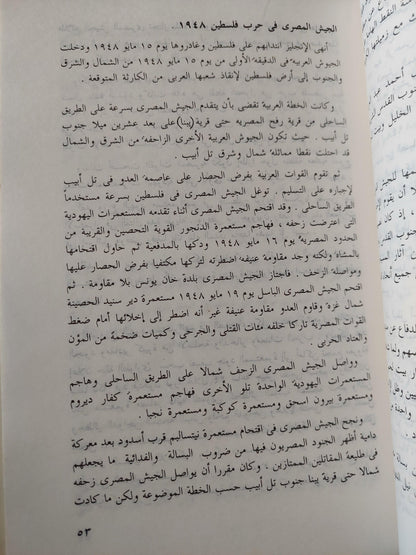 الجيش المصرى فى حرب فلسطين ١٩٤٨ .
أنهى الإنجليز انتدابهم على فلسطين وغادروها يوم ١٥ مايو ١٩٤٨ ودخلت
الجيوش العربية فى الدقيقة الأولى من يوم ١٥ مايو من الشمال والشرق
والجنوب إلى أرض فلسطين لإنقاذ شعبها العربى من الكارثة المتوقعة .
وكانت الخطة العربية تقضى بأن يتقدم الجيش المصرى بسرعة على الطريق
الساحلى من قرية رفح المصرية حتى قرية (يبنا) على بعد عشرين ميلا جنوب
تل أبيب . حيث تكون الجيوش العربية الأخرى الزاحفة من الشرق والشمال
قد احتلت نقطا مماثلة شمال وشرق تل أبيب .
ثم تقوم القوات العربية بفرض الحصار على عاصمة العدو فى تل أبيب
لإجباره على التسليم . توغل الجيش المصرى فى فلسطين بسرعة مستخدماً
الطريق الساحلى . وقد اقتحم الجيش المصرى أثناء تقدمه المستعمرات اليهودية
التى اعترضت زحفه ، فهاجم مستعمرة الدنجور القوية التحصين والقريبة من
الحدود المصرية يوم ١٦ مايو ١٩٤٨ ودكها بالمدفعية ثم حاول اقتحامها
بالمشاة ولكنه وجد مقاومة عنيفة اضطرته لتركها مكتفيا بفرض الحصار عليها
ومواصلة الزحف . فاجتاز الجيش المصرى بلدة خان يونس بلا مقاومة . ثم
اقتحم الجيش المصرى الباسل يوم ١٩ مايو ١٩٤٨ مستعمرة دير سنيد الحصينة
شمال غزة وقاوم العدو مقاومة عنيفة غير أنه اضطر إلى إخلائها أمام ضغط
القوات المصرية تاركا خلفه مئات القتلى والجرحى وكميات ضخمة من المؤن
والعتاد الحربى .
وواصل الجيش المصرى الزحف شمالا على الطريق الساحلى وهاجم
المستعمرات اليهودية الواحدة تلو الأخرى فهاجم مستعمرة كفار ديروم
ومستعمرة بيرون اسحق ومستعمرة كوكبة ومستعمرة نجبا .
ونجح الجيش المصرى فى اقتحام مستعمرة نيتساليم قرب أسدود بعد معركة
دامية أظهر الجنود المصريون فيها من ضروب البسالة والفدائية ما يجعلهم
فى طليعة المقاتلين الممتازين . وكان مقررا أن يواصل الجيش المصرى زحفه
شمالا حتى قرية يبنا جنوب تل أبيب حسب الخطة الموضوعة ولكن ما كادت
٥٣